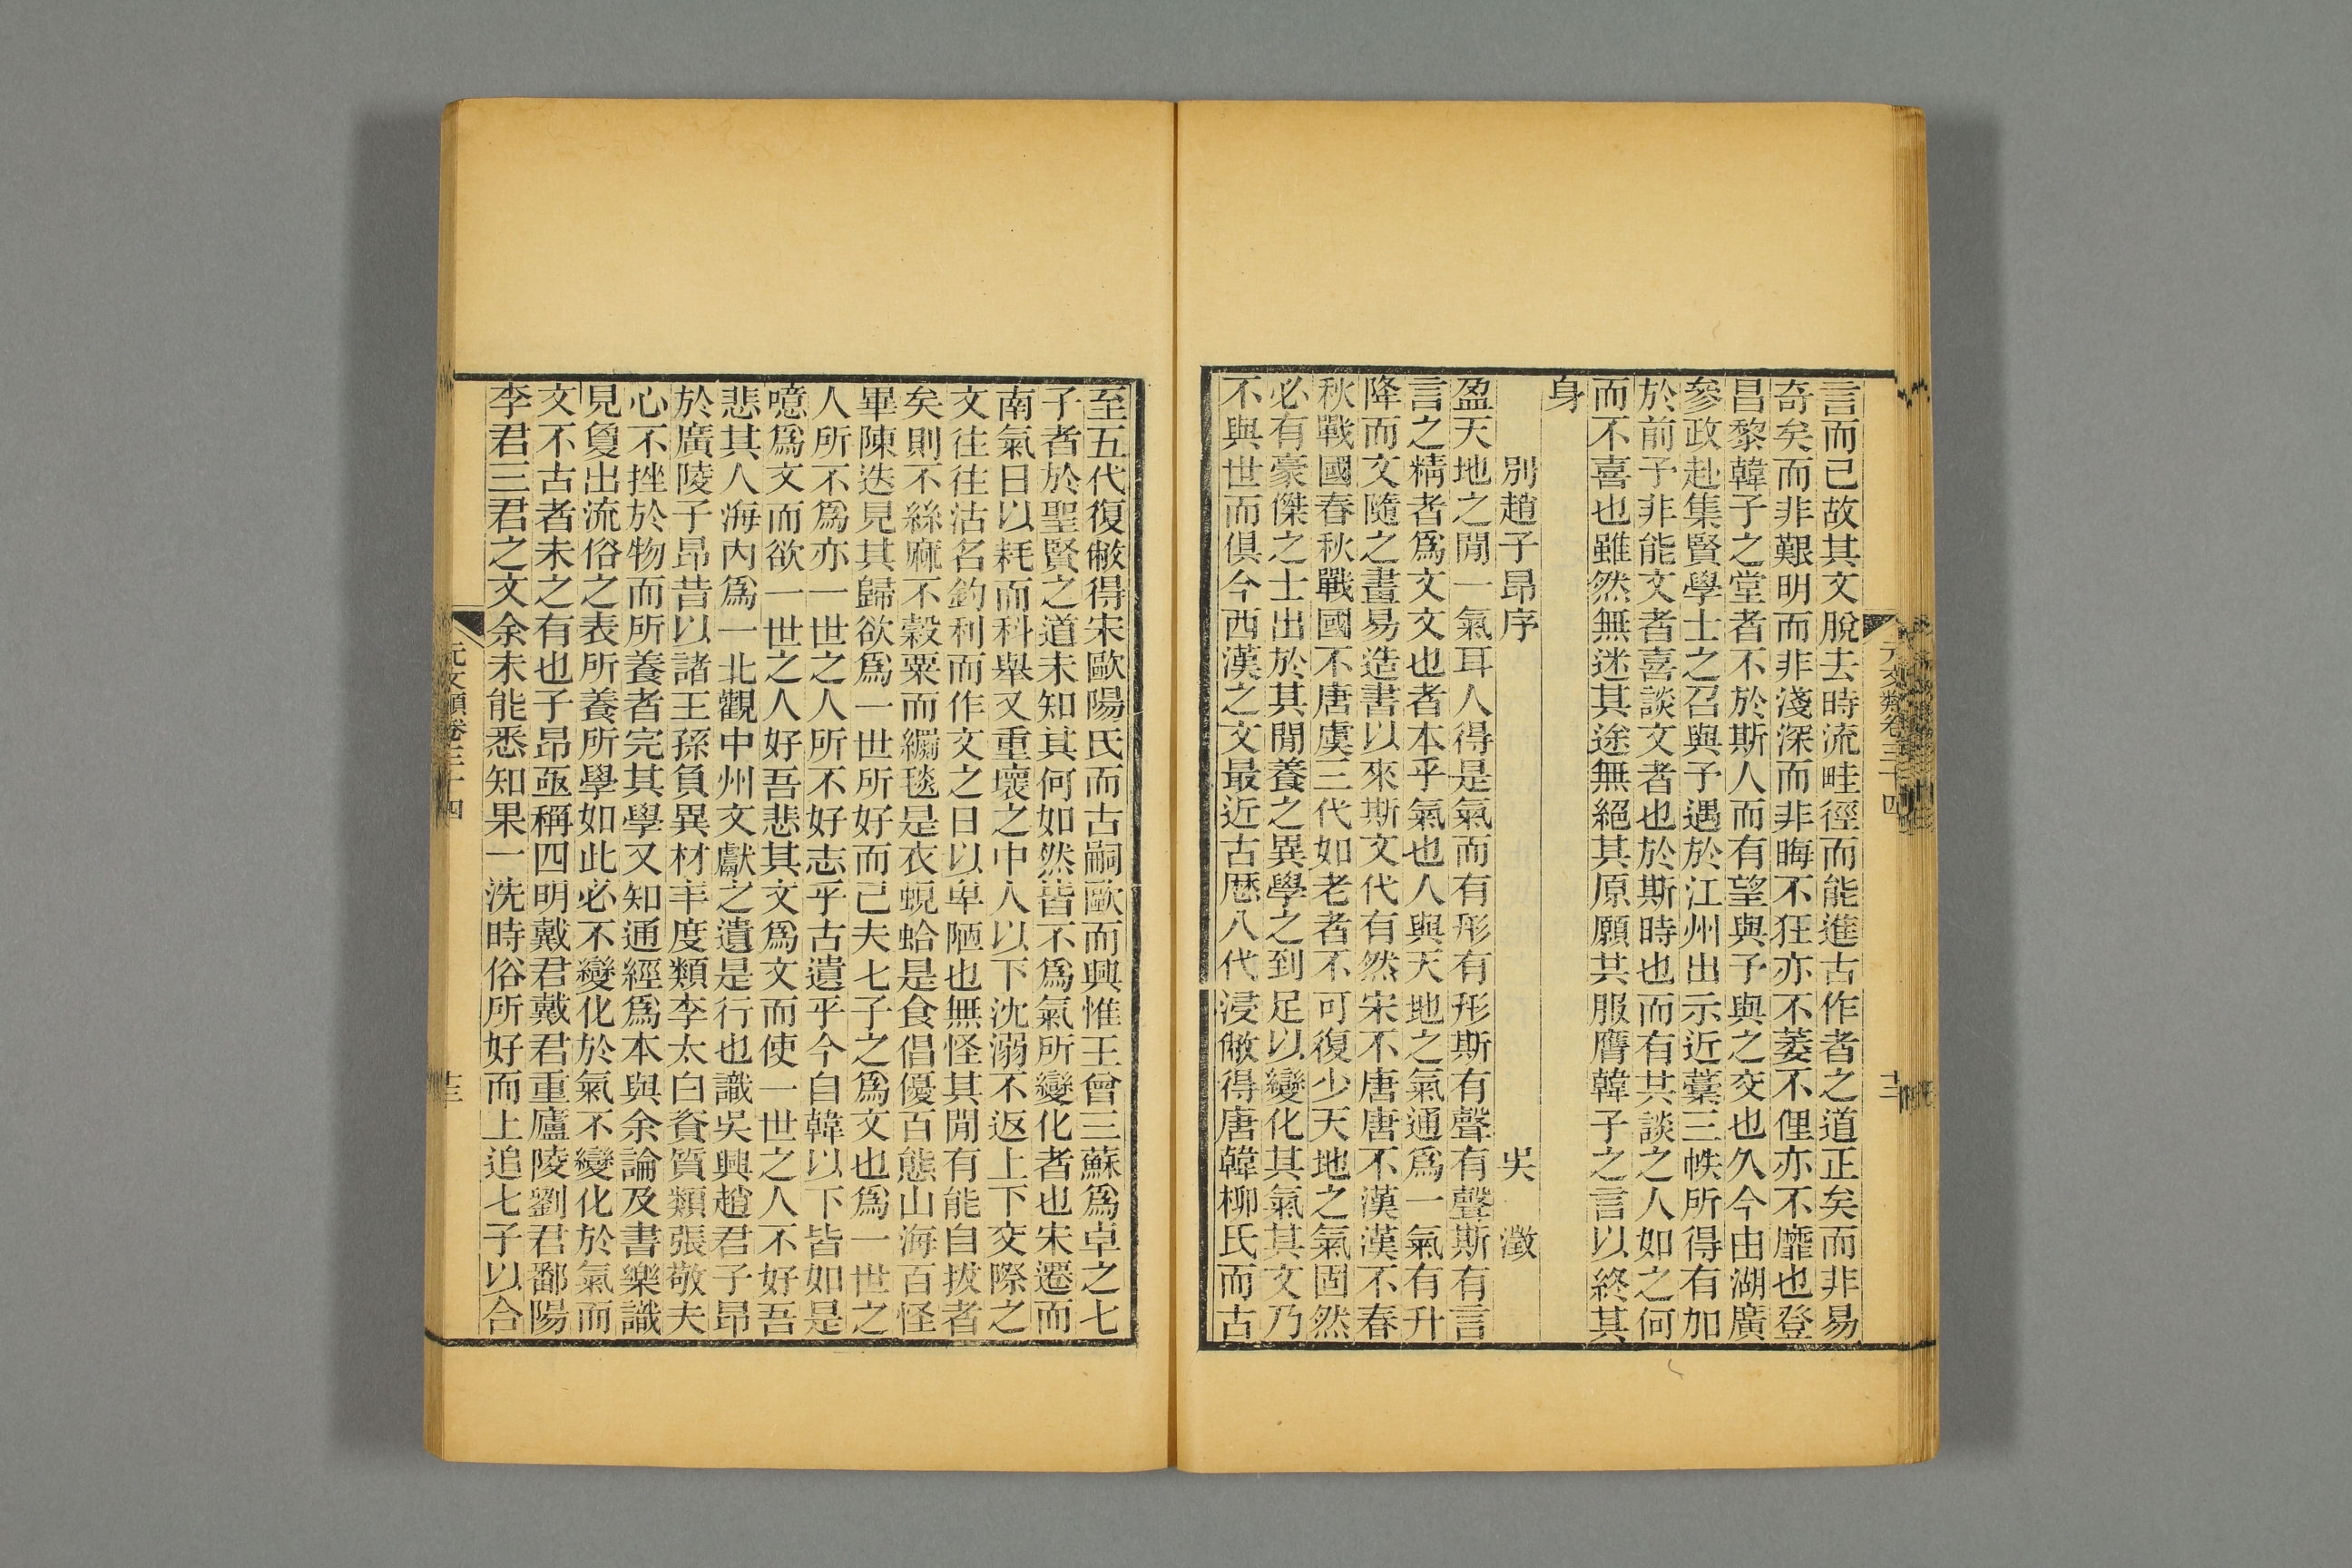 言而已故其文脫去時流畦徑而能進古作者之道正矣而非易
奇矣而非艱明而非淺深而非晦不狂亦不萎不俚亦不靡也登
昌黎韓子之堂者不於斯人而有望與予與之交也久今由湖廣
參政赴集賢學士之召與予遇於江州出示近藁三帙所得有加
於前予非能文者喜談文者也於斯時也而有共談之人如之何
而不喜也雖然無迷其途無絕其原願共服膺韓子之言以終其
身
別趙子昂序　吳　澂
盈天地之閒一氣耳人得是氣而有形有形斯有聲有聲斯有言
言之精者爲文文也者本乎氣也人與天地之氣通爲一氣有升
降而文隨之畫易造書以來斯文代有然宋不唐唐不漢漢不春
秋戰國春秋戰國不唐虞三代如老者不可復少天地之氣固然
必有豪傑之士出於其閒養之異學之到足以變化其氣其文乃
不與世而俱今西漢之文最近古歷八代浸敝得唐韓柳氏而古
至五代復敝得宋歐陽氏而古嗣歐而興惟王曾三蘇爲卓之七
子者於聖賢之道未知其何如然皆不爲氣所變化者也宋遷而
南氣日以耗而科舉又重壞之中人以下沈溺不返上下交際之
文往往沽名釣利而作文之日以卑陋也無怪其閒有能自拔者
矣則不絲麻不穀粟而繝毯是衣蜆蛤是食倡優百態山海百怪
畢陳迭見其歸欲爲一世所好而已夫七子之爲文也爲一世之
人所不爲亦一世之人所不好志乎古遺乎今自韓以下皆如是
噫爲文而欲一世之人好吾悲其文爲文而使一世之人不好吾
悲其人海內爲一北觀中州文獻之遺是行也識吳興趙君子昂
於廣陵子昂昔以諸王孫負異材丰度類李太白資質類張敬夫
心不挫於物而所養者完其學又知通經爲本與余論及書樂識
見敻出流俗之表所養所學如此必不變化於氣不變化於氣而
文不古者未之有也子昂亟稱四明戴君戴君重廬陵劉君鄱陽
李君三君之文余未能悉知果一洗時俗所好而上追七子以合
元文類卷三十四
十三